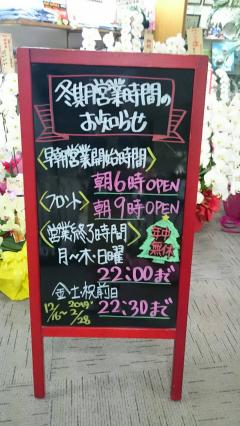 冬期営業時間の
お知らせ
〈早朝営業開始時間〉
朝6時OPEN
〈フロント〉
朝9時OPEN
〈営業終了時間〉
月〜木・日曜
22:00まで
年中
無休
金土祝前日
22:30まで
12/16〜2019.2/28